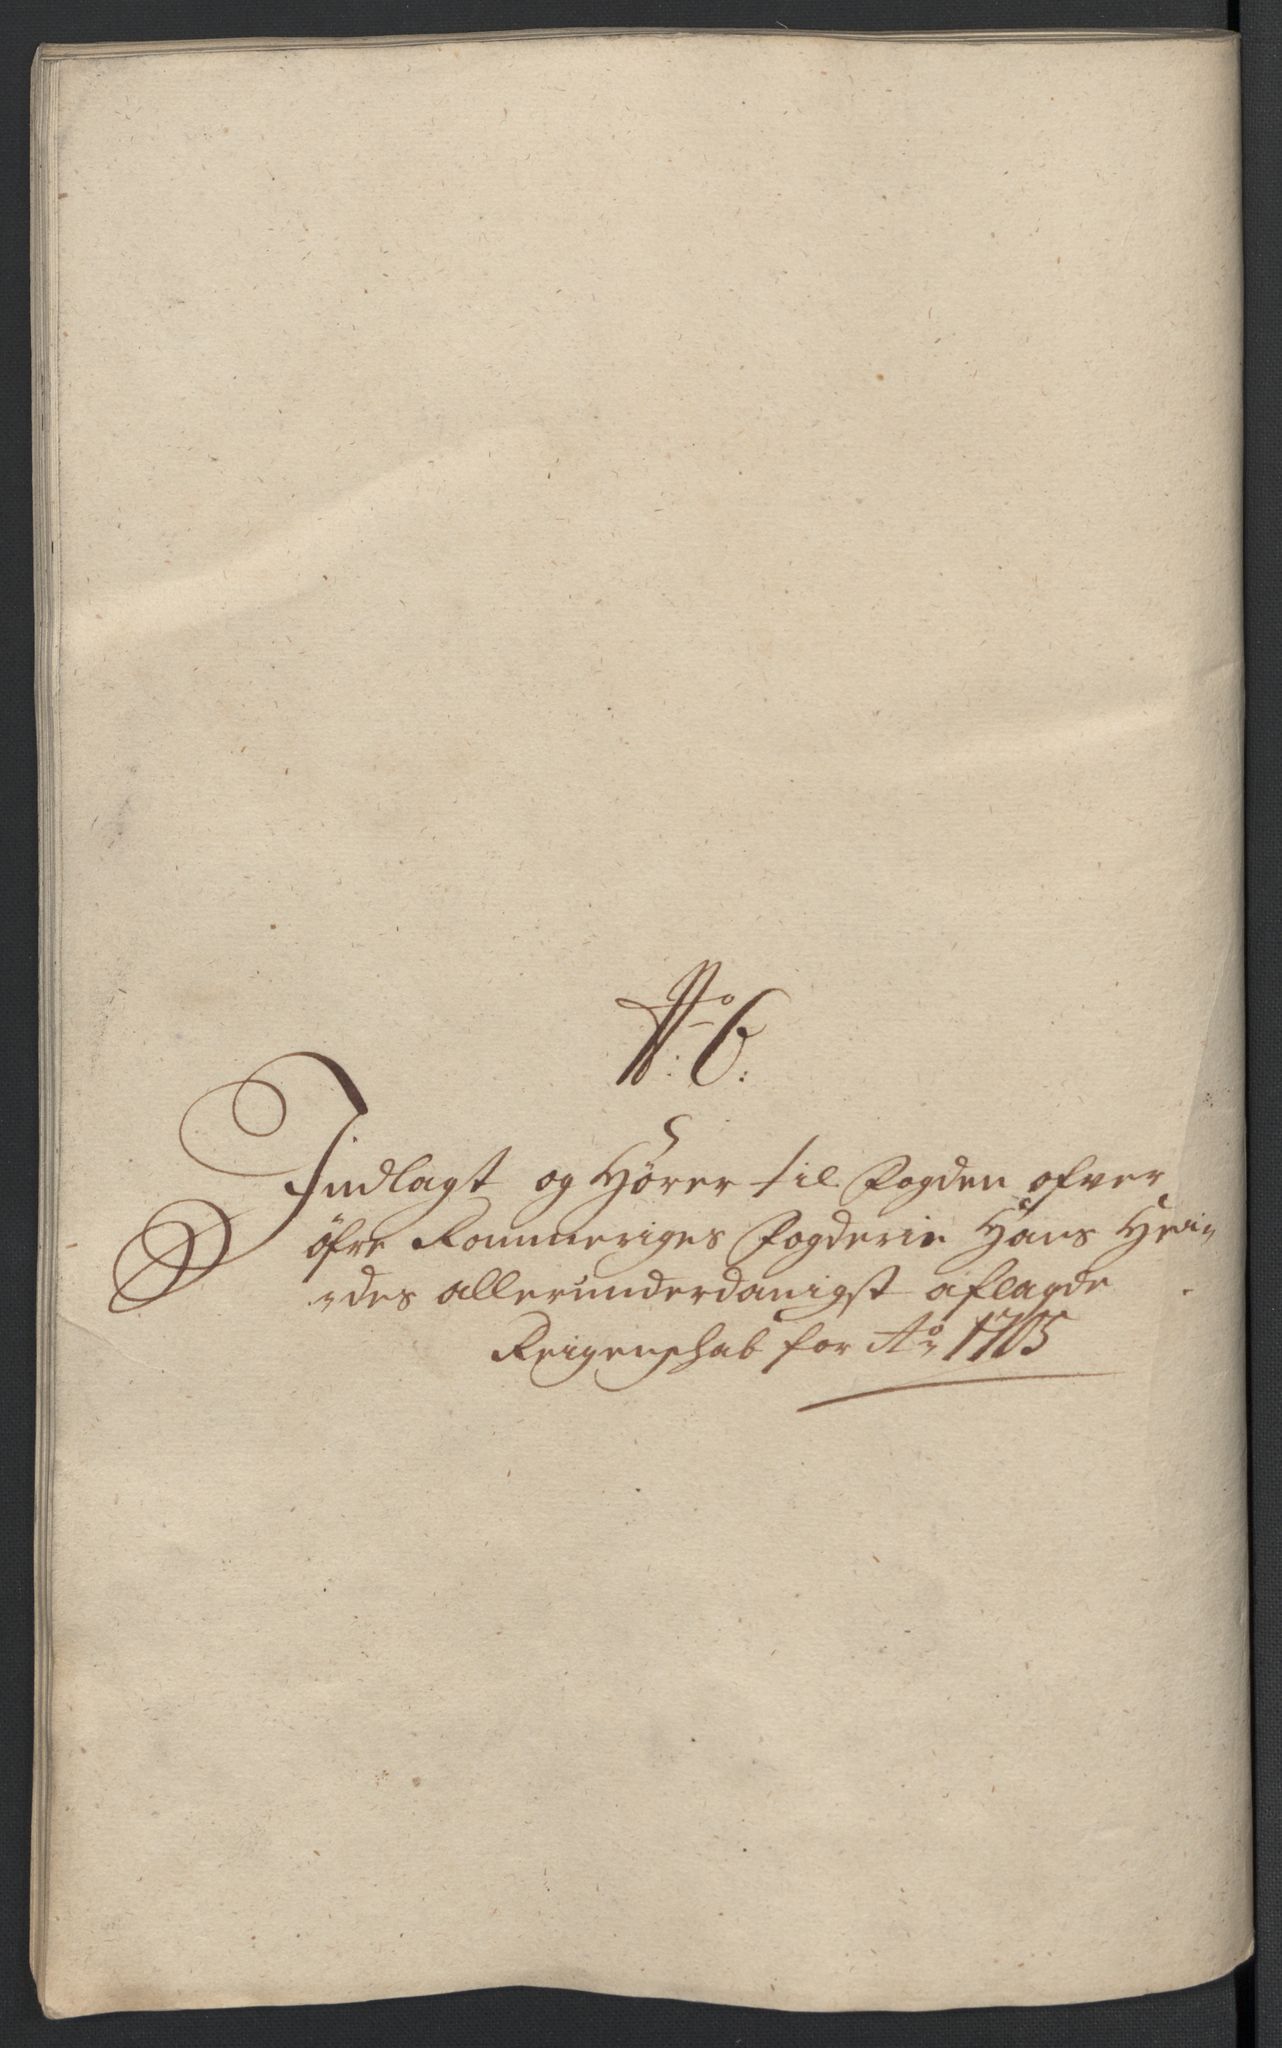 No 6:
Indlagt og Hører til Fogden ofver
öfre Rommeriges Fogderie Hans Hei-
-des allerunderdanigst aflagde
Reigenschab for Ao 1705